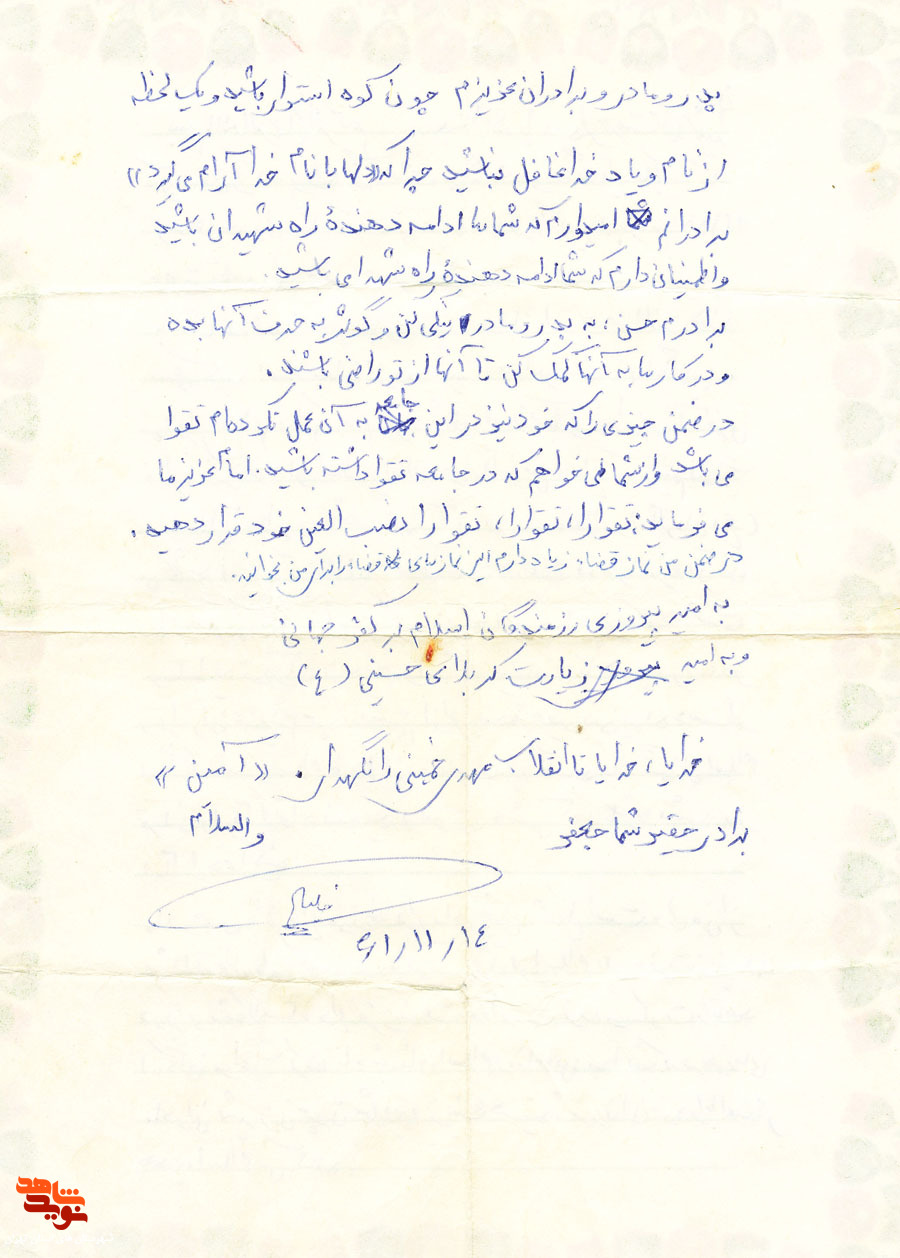 پدر و مادر و برادران عزیزم چون کوه استوار باشید و یک لحظه
از نام و یاد خدا غافل نباشید چرا که «دلها با نام خدا آرام می گیرد»
برادرانم امیدوارم که شماها ادامه دهندهٔ راه شهیدان باشید
و اطمینان دارم که شما ادامه دهندهٔ راه شهدا می باشید.
برادرم حسن، به پدر و مادر نیکی کن و گوش به حرف آنها بده
و در کارها به آنها کمک کن تا آنها از تو راضی باشند.
در ضمن چیزی را که خود نیز در این جامعه به آن عمل نکرده‌ام تقوا
می باشد و از شما می خواهم که در جامعه تقوا داشته باشید. امام عزیز ما
می فرماید: تقوا را، تقوا را، تقوا را نصب العین خود قرار دهید.
در ضمن من نماز قضاء زیاد دارم این نمازهای قضاء را برای من بخوانید.
به امید پیروزی رزمندگان اسلام بر کفر جهانی
و به امید زیارت کربلای حسینی (ع)
خدایا، خدایا تا انقلاب مهدی خمینی را نگهدار. «آمین»
برادر حقیر شما جعفر
والسلام
۶۱/۱۱/۱۴
شاهد
نوید